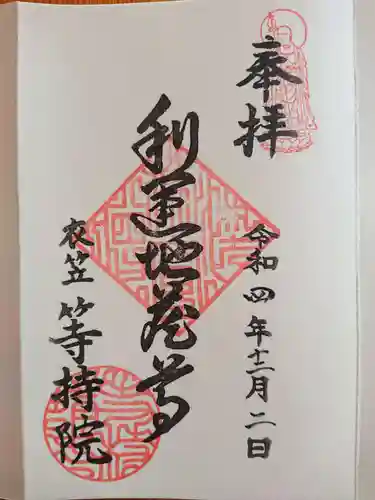 奉拝
令和四年十二月二日
利運地蔵尊
衣笠
等持院